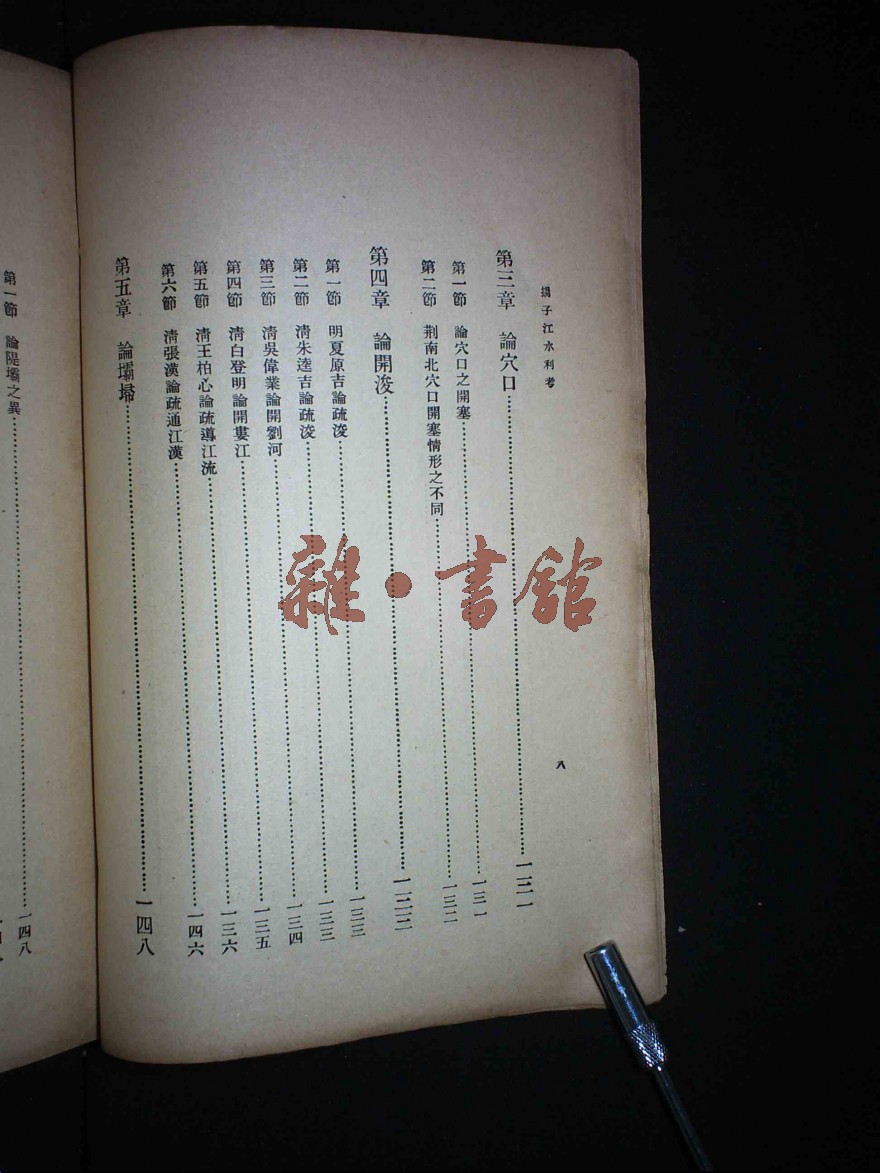 揚子江水利考
八
第三章 論穴口……一三一
第一節 論穴口之開塞……一三一
第二節 荆南北穴口開塞情形之不同……一三二
第四章 論開浚……一三三
第一節 明夏原吉論疏浚……一三三
第二節 清朱逵吉論疏浚……一三三
第三節 清吳偉業論開劉河……一三四
第四節 清白登明論開婁江……一三五
第五節 清王柏心論疏導江流……一三六
第六節 清張漢論疏通江漢……一四六
第五章 論壩埽……一四八
第一節 論隄壩之異……一四八
雜·書館